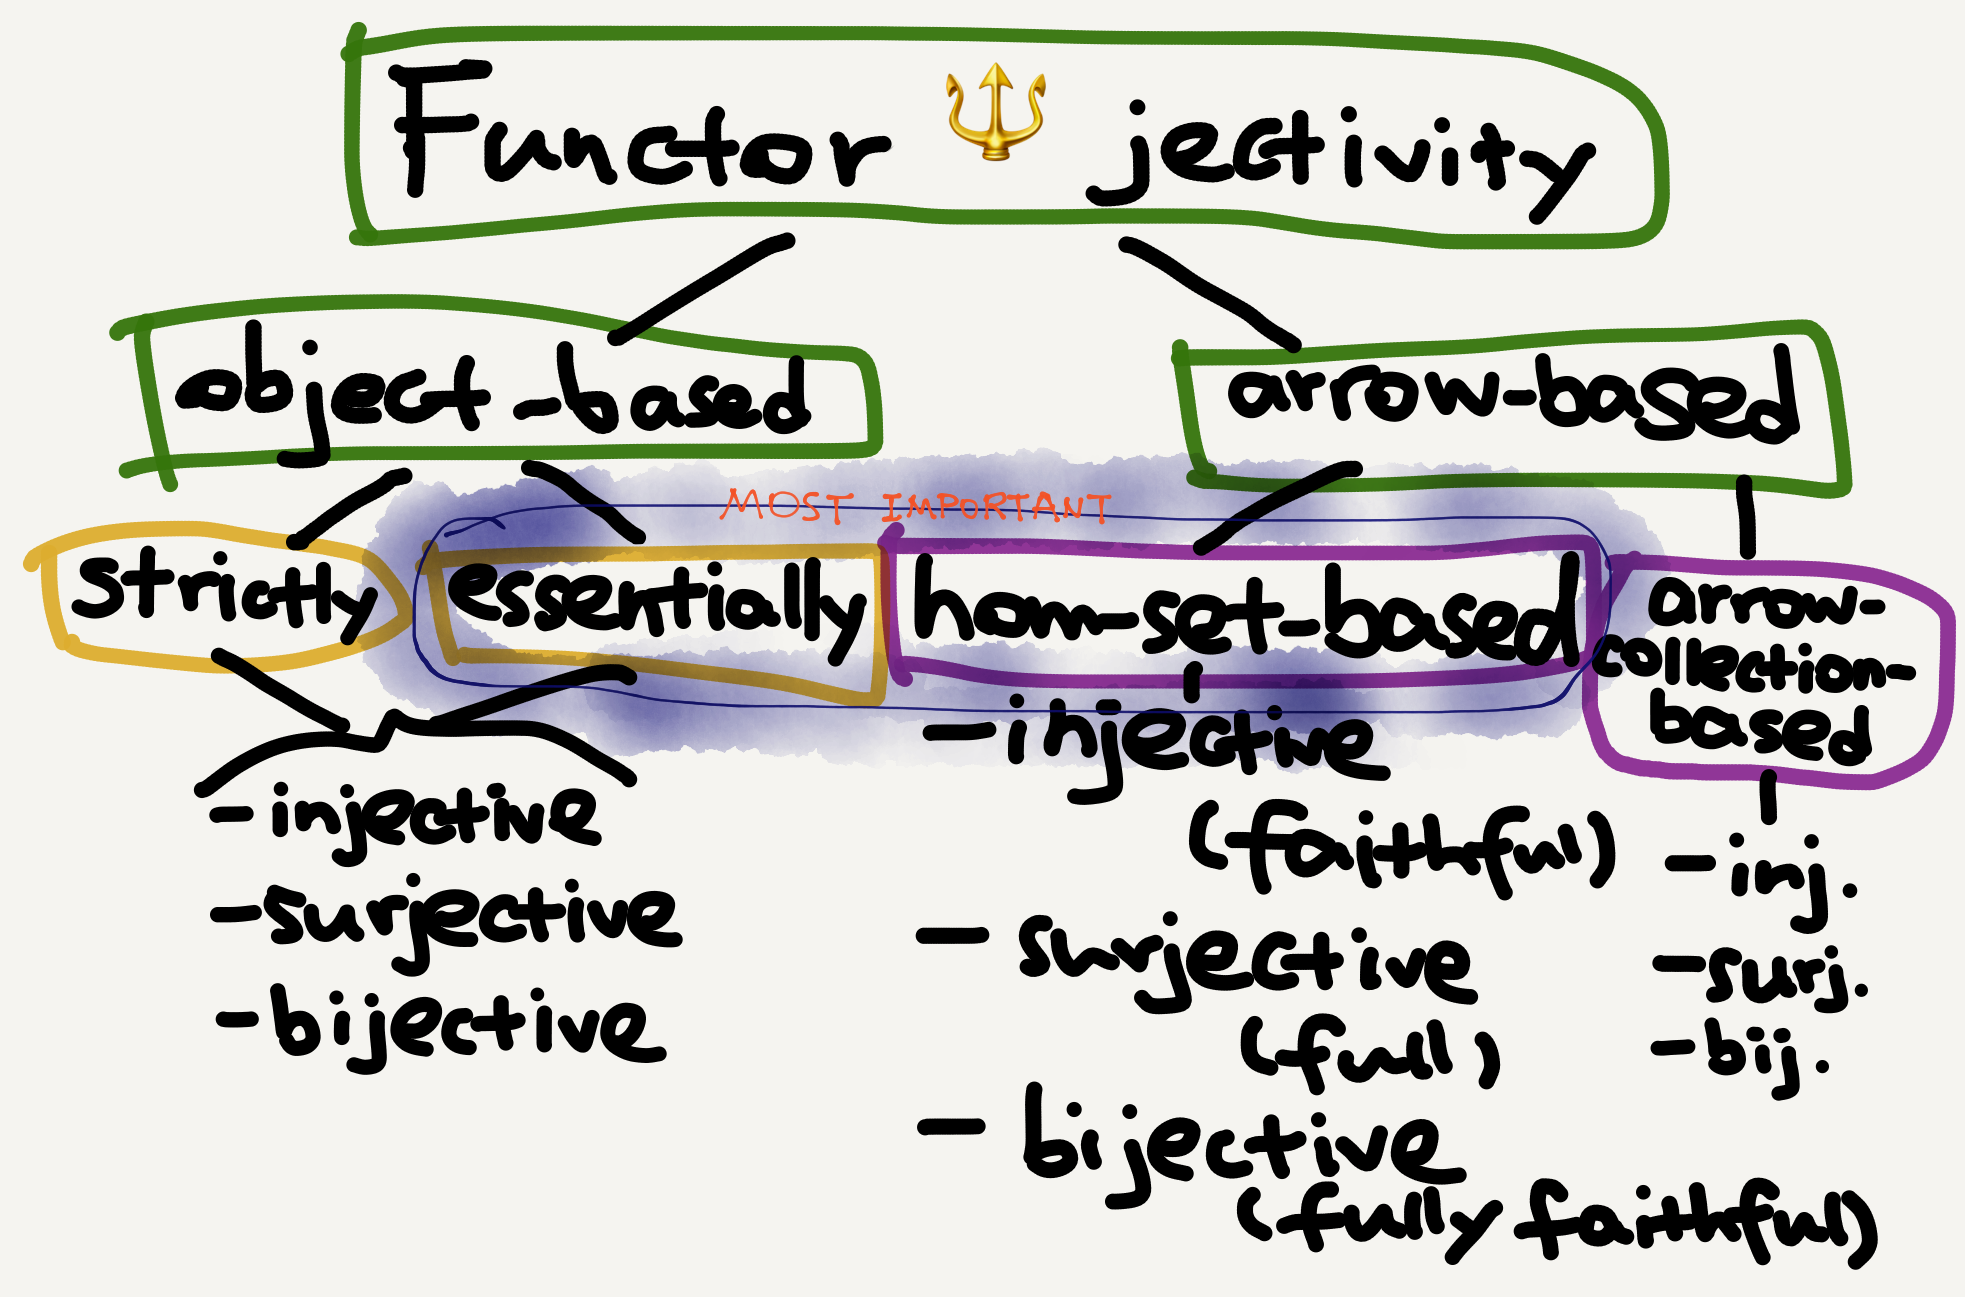 Functor 🔱 jectivity
object-based
arrow-based
MOST IMPORTANT
strictly
essentially
hom-set-based
arrow-
collection-
based
- injective
- surjective
- bijective
- injective
(faithful)
- surjective
(full)
- bijective
(fully faithful)
- inj.
- surj.
- bij.